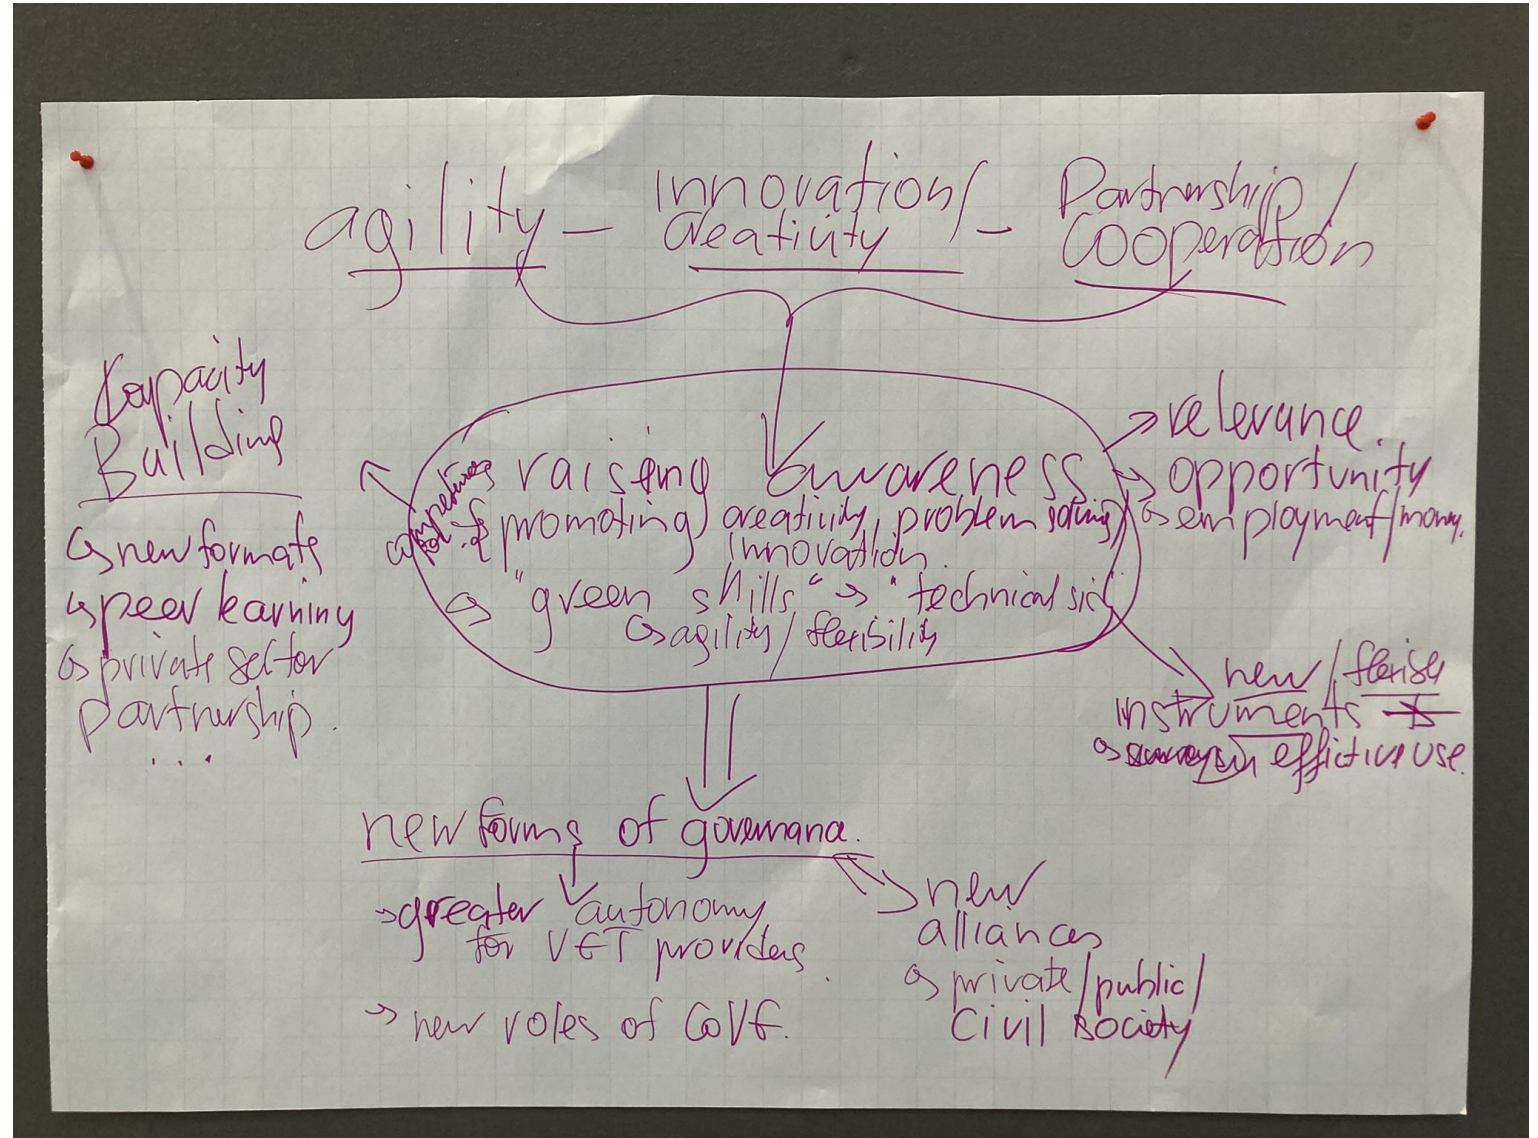 agility – innovation/ – Partnership/
creativity
cooperation
Capacity
Building
→ new formats
→ peer learning
→ private sector
partnership.
...
competences
for
raising awareness
promoting creativity, problem solving
innovation
→ "green skills" → "technical
→ agility/flexibility
→ relevance.
→ opportunity
→ employment/money.
new/flexible
instruments
→ effective use.
new forms of governance.
→ greater autonomy
for VET providers.
→ new roles of CoVE.
new
alliances
→ private/public/
civil society